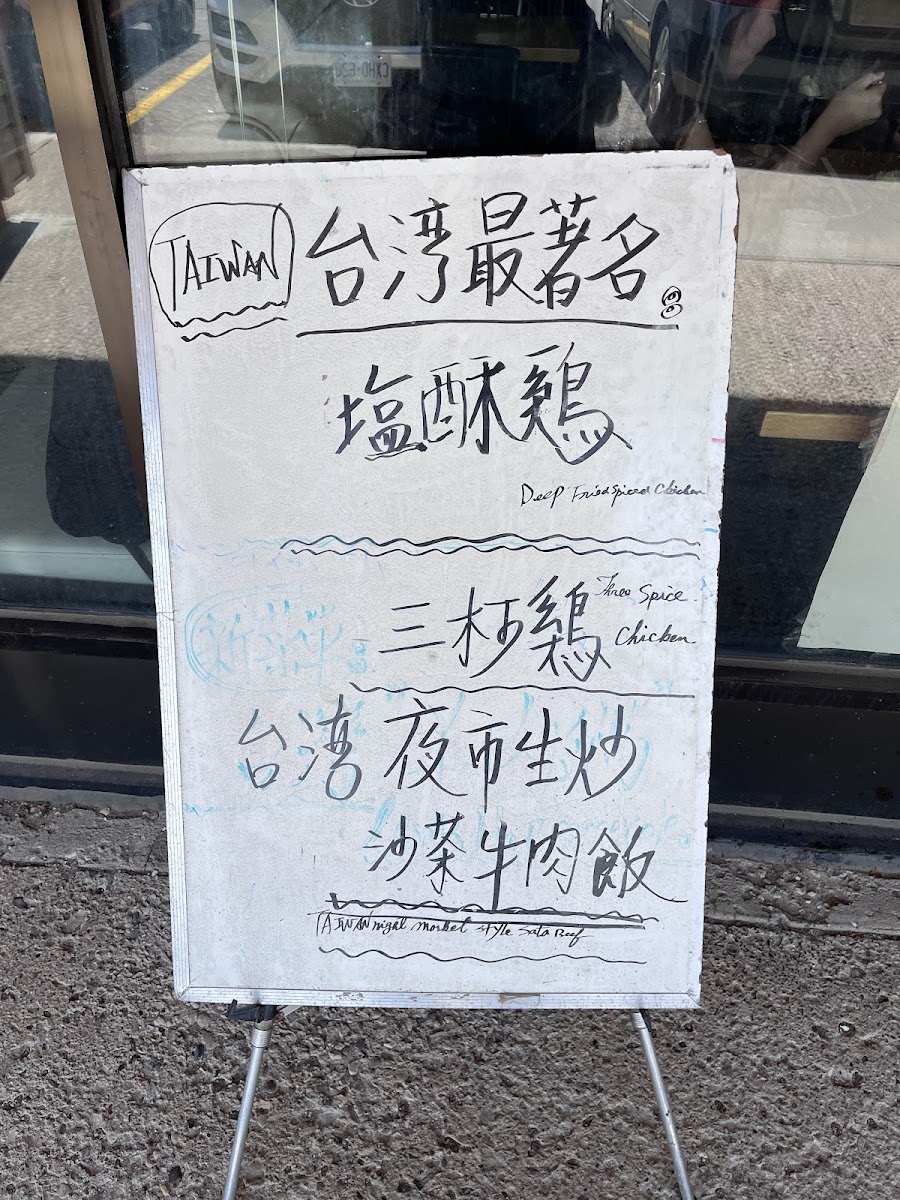 TAIWAN 台湾最著名
塩酥鶏
Deep Fried Spiced Chicken
三杯鶏 Three Spice
Chicken
台湾夜市生炒
沙茶牛肉飯
TAIWAN night market style Sata Beef